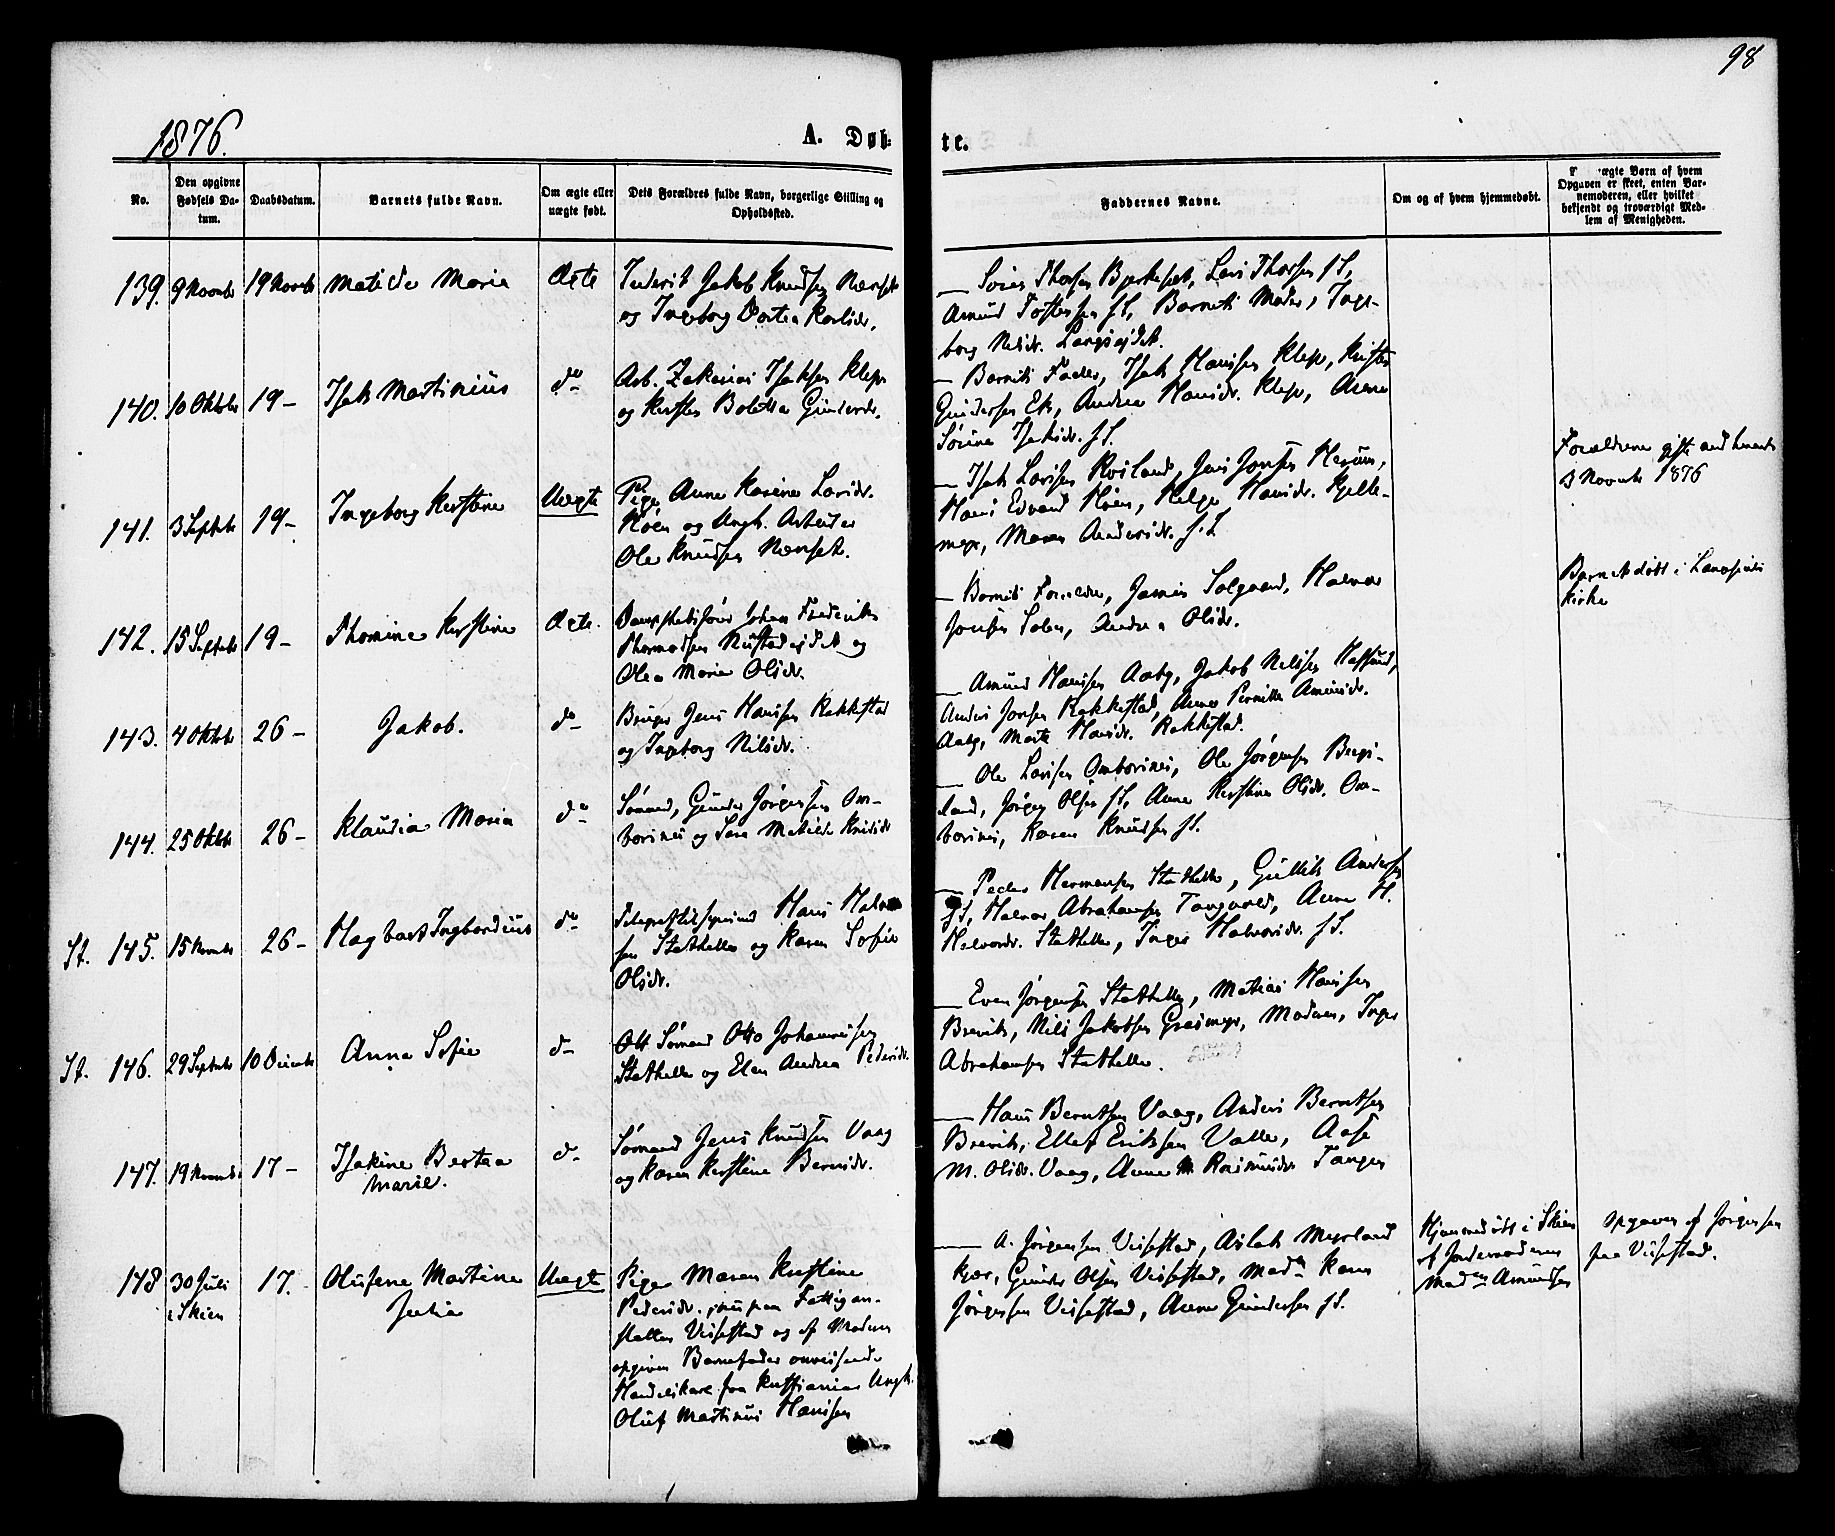 98
1876.
A. Døb-
te.
No.
Den opgivne Fødsels Da-tum.
Daabsdatum.
Barnets fulde Navn.
Om ægte eller uægte født.
Dets Forældres fulde Navn, borgerlige Stilling og Opholdssted.
Faddernes Navne.
Om og af hvem hjemmedøbt.
ægte Børn af hvem Opgaven er skeet, enten Bar-nemoderen, eller hvilket bekjendt og troværdigt Med-lem af Menigheden.
139. 9 Novb 19 Novb Matilde Maria Ægte
Jakob Knudsen
og Ingeborg Dortea
Amund Tostensen sS, Barnets Moder, Inge-
borg Nilsdr. Langsejdet.
140. 10 Oktb 19 - Isak Martinius do
Arb. Zakarias Isaksen Klep
og Kersten Boletta Gundersdr.
Barnets Fader, Isak Hansen Klep,
Gundersen Ek, Andrea Hansdr. Klep, Anne
Sørine Isaksdr. sS.
141. 3 Septb 19 - Ingeborg Kerstine Uægte
Pige Anne Karine Larsdr.
og Ungk. Arbeider
Ole Knudsen
Isak Larsen
Maren Andersdr. sS
Forældrene gifte
3 Novemb 1876
142. 15 Septb 19 - Thomine Kerstine Ægte.
Johan Frederik
Thormodsen
Olea Maria Olsdr.
Barnets Forældre, Halvor
Andrea Olsdr.
Barnet døbt i
Kirke
143. 4 Oktb 26 - Jakob. do
Bruger Jens Hansen Rakkestad
og Ingeborg Nilsdr.
Amund Hansen Aaby, Jakob Nilsen
Anders Jonsen Rakkestad, Anne Pernille Amundsdr.
Aaby, Marte Hansdr. Rakkestad.
144. 25 Oktb 26 - Klaudia Maria do
Sømand, Gunder Jørgensen Om-
borsnes og Sara Matilde Knudsdr
Ole Larsen Omborsnes, Ole Jørgensen
Jørgen Olsen sS, Anne Kerstine Olsdr. Om-
borsnes, Karen Knudsen sS.
St. 145. 15 Novemb 26 - Hagbart Ingvardius do
Hans Halvor
sen Stathelle og Karen Sofie
Olsdr.
Peder Hermansen Stathelle, Gullik Andersen
sS, Halvor Abrahamsen Tangvald, Anne H.
Halvorsdr. Stathelle, Inger Halvorsdr. sS.
St. 146. 29 Septemb 10 Decemb Anna Sofie d-
Sømand Otto Johannesen
Stathelle og Elen Andrea Pedersdr.
Even Jørgensen Stathelle, Matias Hansen
Brevik, Nils Jakobsen Grasmyr, Moderen, Inger
Abrahamsen Stathelle.
147. 19 Novemb 17 - Isakine Bertea
Marie. d-
Sømand Jens Knudsen Vaag
og Karen Kerstine Berntsdr.
Hans Berntsen Vaag, Anders Berntsen
Brevik, Ellef Eriksen Valle, Aase
M. Olsdr. Vaag, Anne M. Rasmusdr Tangen
148 30 Juli
i Skien 17. Olufine Martine
Julia Uægte
Pige Maren Kerstine
Pedersdr. paa Fattigan-
stalten Vissestad og af Moderen
opgiven Barnefader omreisende
Handelskarl fra Kristiania Ungk.
Oluf Martinus Hansen
A. Jørgensen Vissestad, Aslak Myrland
Kjær, Gunder Olsen Vissestad, Madm Karen
Jørgensen Vissestad, Anne Gundersen sS.
Hjemmedøbt i Skien
af Jordemoderen
Madm Amundsen
Opgaven af Jørgensen
paa Vissestad.